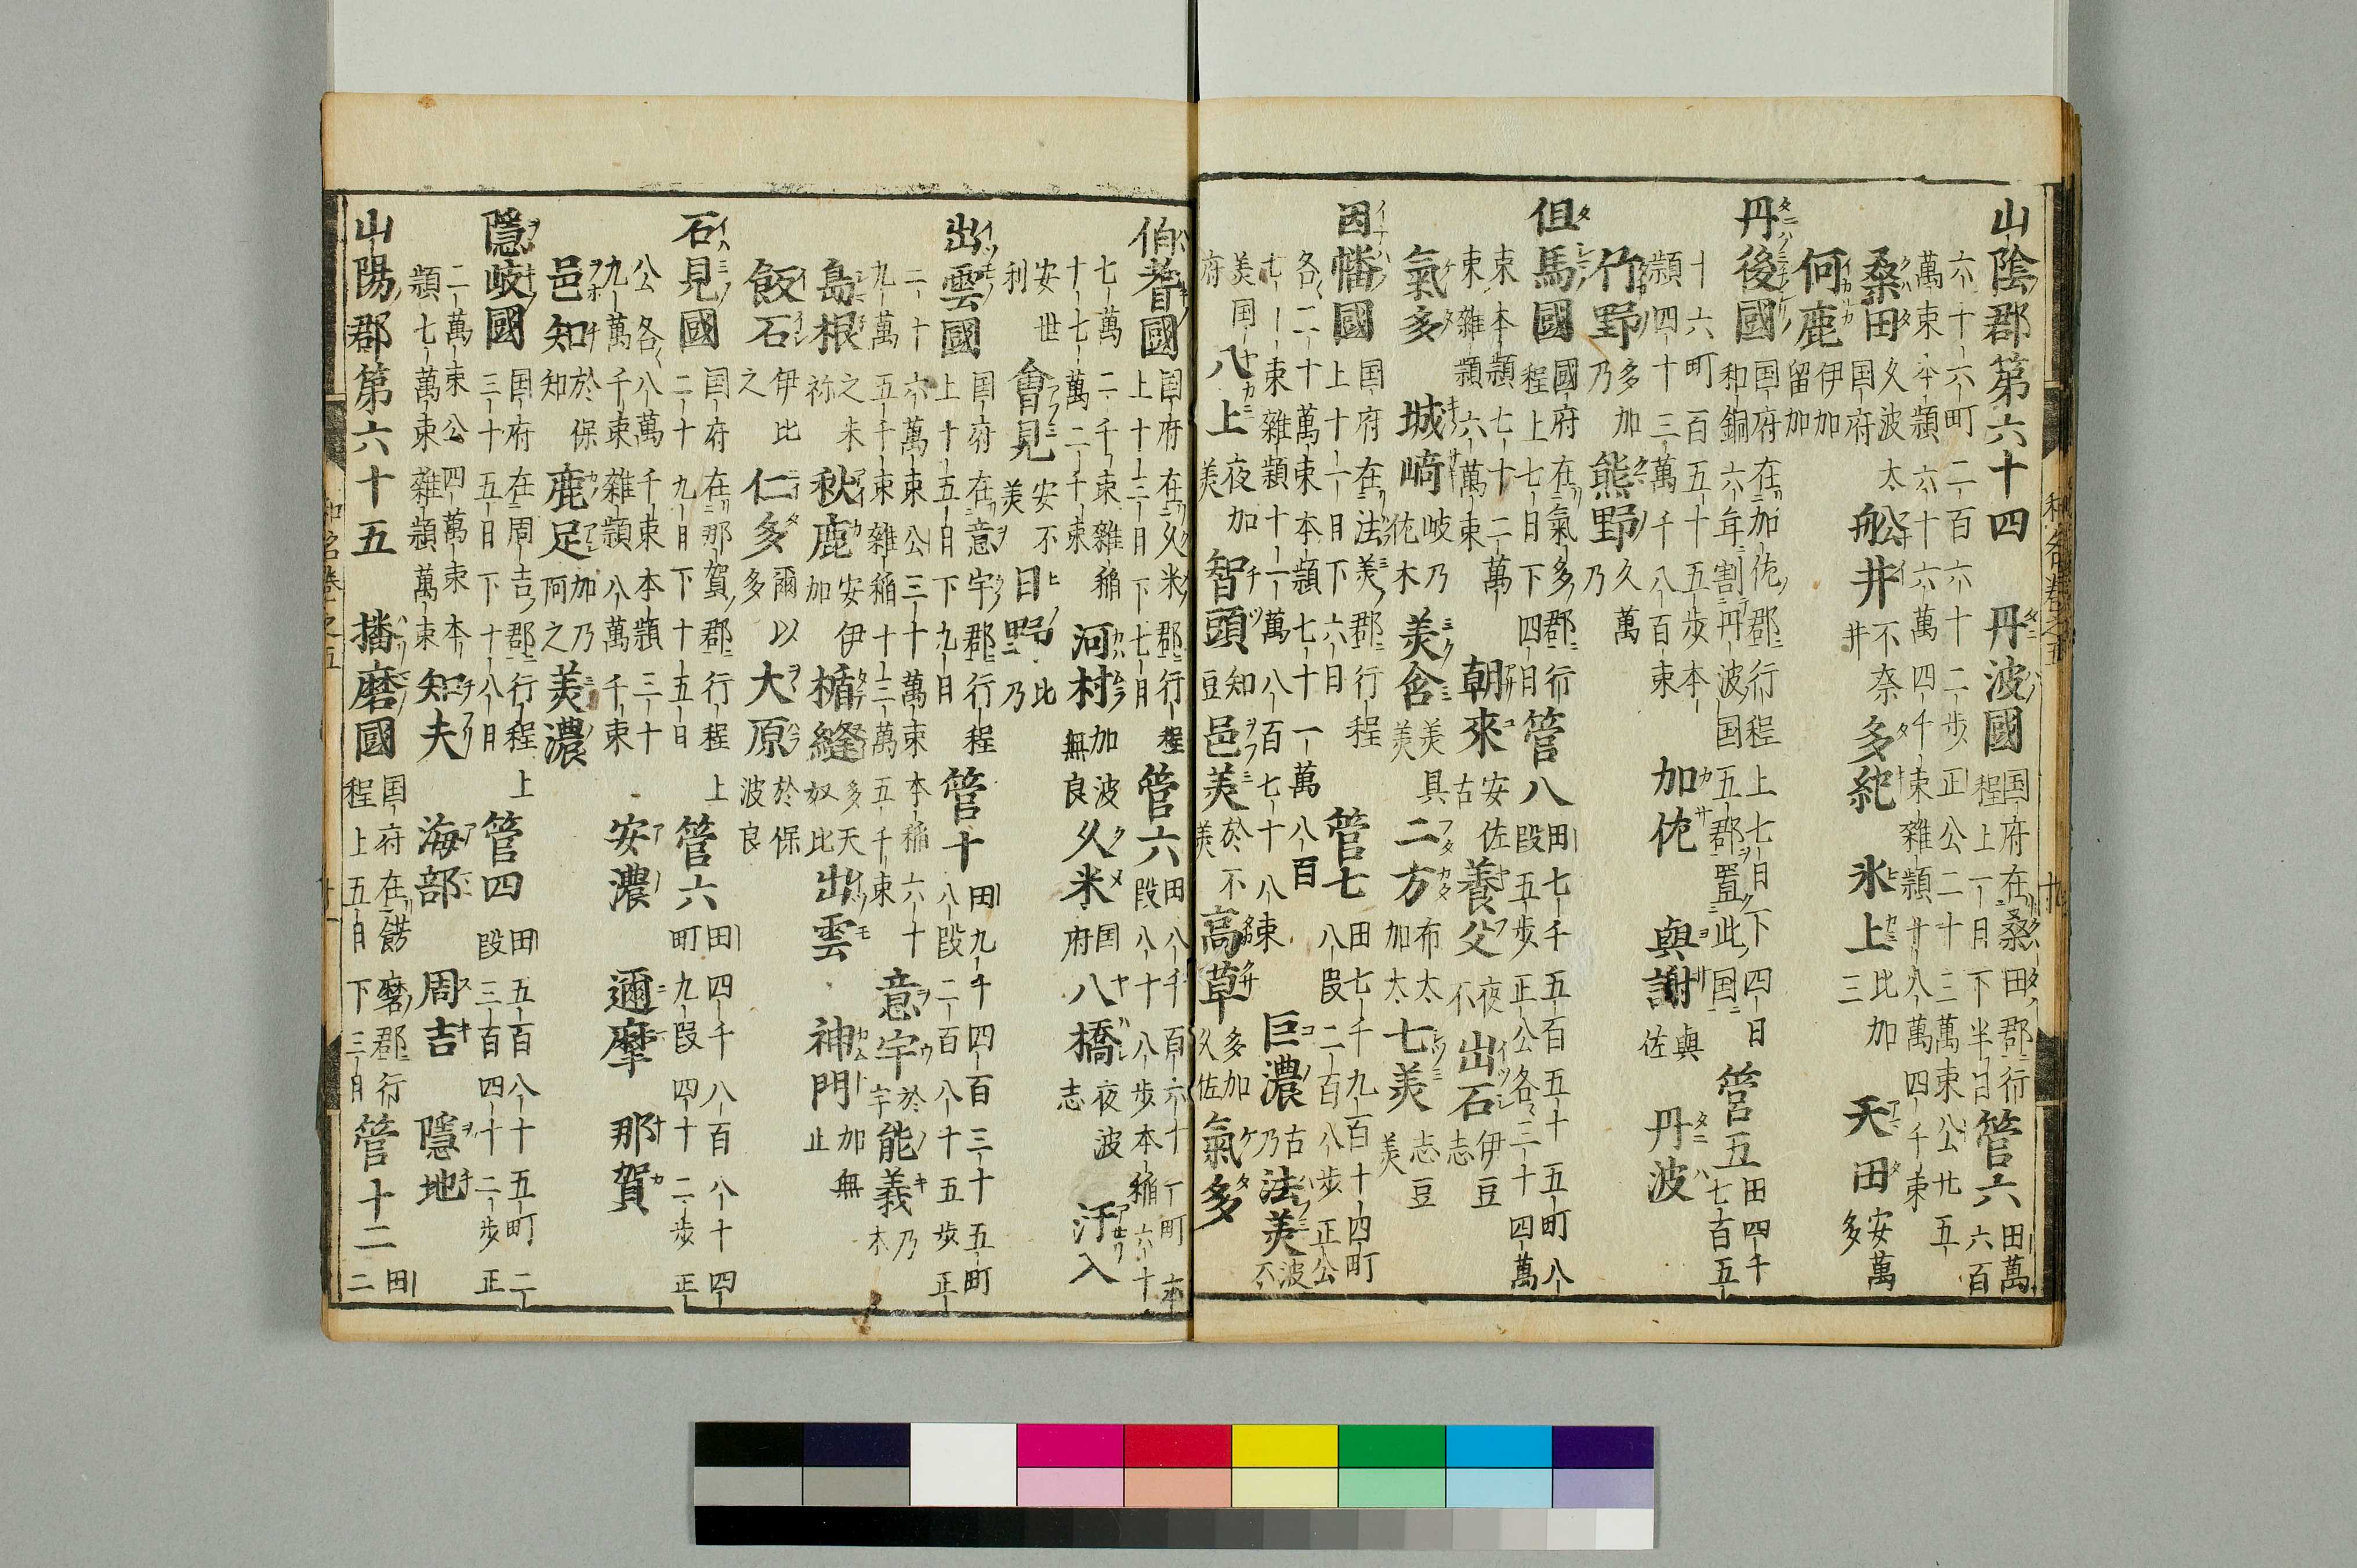 山陰郡第六十四 丹波國 国府在桑田郡行程上一日下半日 管六 田萬六百
六十六町二百六十二歩正公二十三萬束公廿五
萬束本頴六十六萬四千束雜頴廿八萬四千束
桑田 久波太国府 舩井 不奈井 多紀 氷上 比加三 天田 安萬多
何鹿 伊加留加
丹後國 国府在加佐郡行程上七日下四日和銅六年割丹波国五郡置此国 管五 田四千七百五
十六町百五十五歩本頴四十三萬千八百束
加佐 與謝 與佐 丹波
竹野 多加乃 熊野 久萬乃
但馬國 國府在氣多郡行程上七日下四日 管八 田七千五百五十五町八段五歩正公各三十四萬
束本頴七十二萬束雜頴六萬束
朝來 安佐古 養父 夜不 出石 伊豆志
氣多 城崎 岐乃佐木 美含 美具美 二方 布太加太 七美 志豆美
因幡國 国府在法美郡行程上十二日下六日 管七 田七千九百十四町八段二百八歩正公
各二十萬束本頴七十一萬八百
七一束雜頴十一萬八百七十八束
巨濃 古乃 法美 波不美国府
八上 夜加美 智頭 知豆 邑美 於不美 高草 多加久佐 氣多
伯耆國 国府在久米郡行程上十三日下七日 管六 田八千百六十一町六段八十八歩本稲六十
七萬二千束雜稲十七萬二千束
河村 加波無良 久米 国府 八橋 夜波志 汗入
安世利 會見 安不美 日野 比乃
出雲國 国府在意宇郡行程上十五日下九日 管十 田九千四百三十五町八段二百八十五歩正
二十六萬束公三十萬束本稲六十
九萬五千束雜稲十三萬五千束
意宇 於宇 能義 乃木
島根 之末祢 秋鹿 安伊加 楯縫 多天奴比 出雲 神門 加無止
飯石 伊比之 仁多 爾以多 大原 於保波良
石見國 国府在那賀郡行程上二十九日下十五日 管六 田四千八百八十四町九段四十二歩正
公各八萬千束本頴三十
九萬千束雜頴八萬千束
安濃 邇摩 那賀
邑知 於保知 鹿足 加乃阿之 美濃
隱岐國 国府在周吉郡行程上三十五日下十八日 管四 田五百八十五町二段三百四十二歩正
二萬束公四萬束本
頴七萬束雜頴萬束
知夫 海部 周吉 隱地
山陽郡第六十五 播磨國 国府在餝磨郡行程上五日下三日 管十二 田二